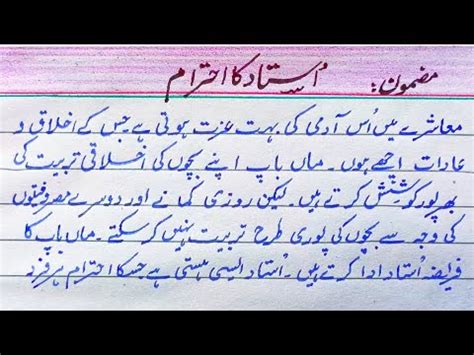 مضمون: اُستاد کا احترام
معاشرے میں اُس آدمی کی بہت عزت ہوتی ہے جس کے اخلاق و
عادات اچھے ہوں۔ ماں باپ اپنے بچوں کی اخلاقی تربیت کی
بھرپور کوشش کرتے ہیں۔ لیکن روزی کمانے اور دوسرے مصروفیتوں
کی وجہ سے بچوں کی پوری طرح تربیت نہیں کر سکتے۔ ماں باپ کا
فریضہ اُستاد ادا کرتے ہیں۔ اُستاد ایسی ہستی ہے جس کا احترام ہر فرد